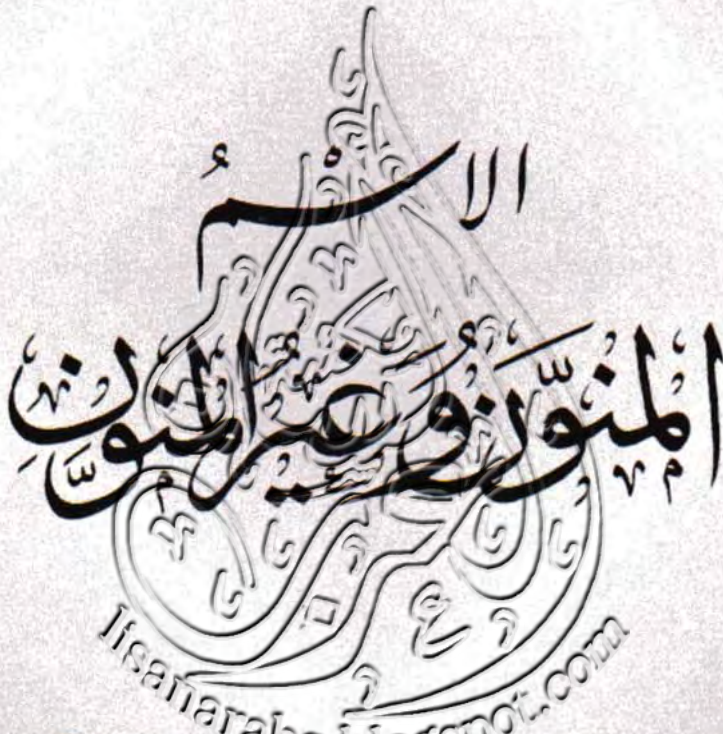 الاسْمُ
المنوّنُ وَغيرُ المنوّنِ
lisanarabs.blogspot.com